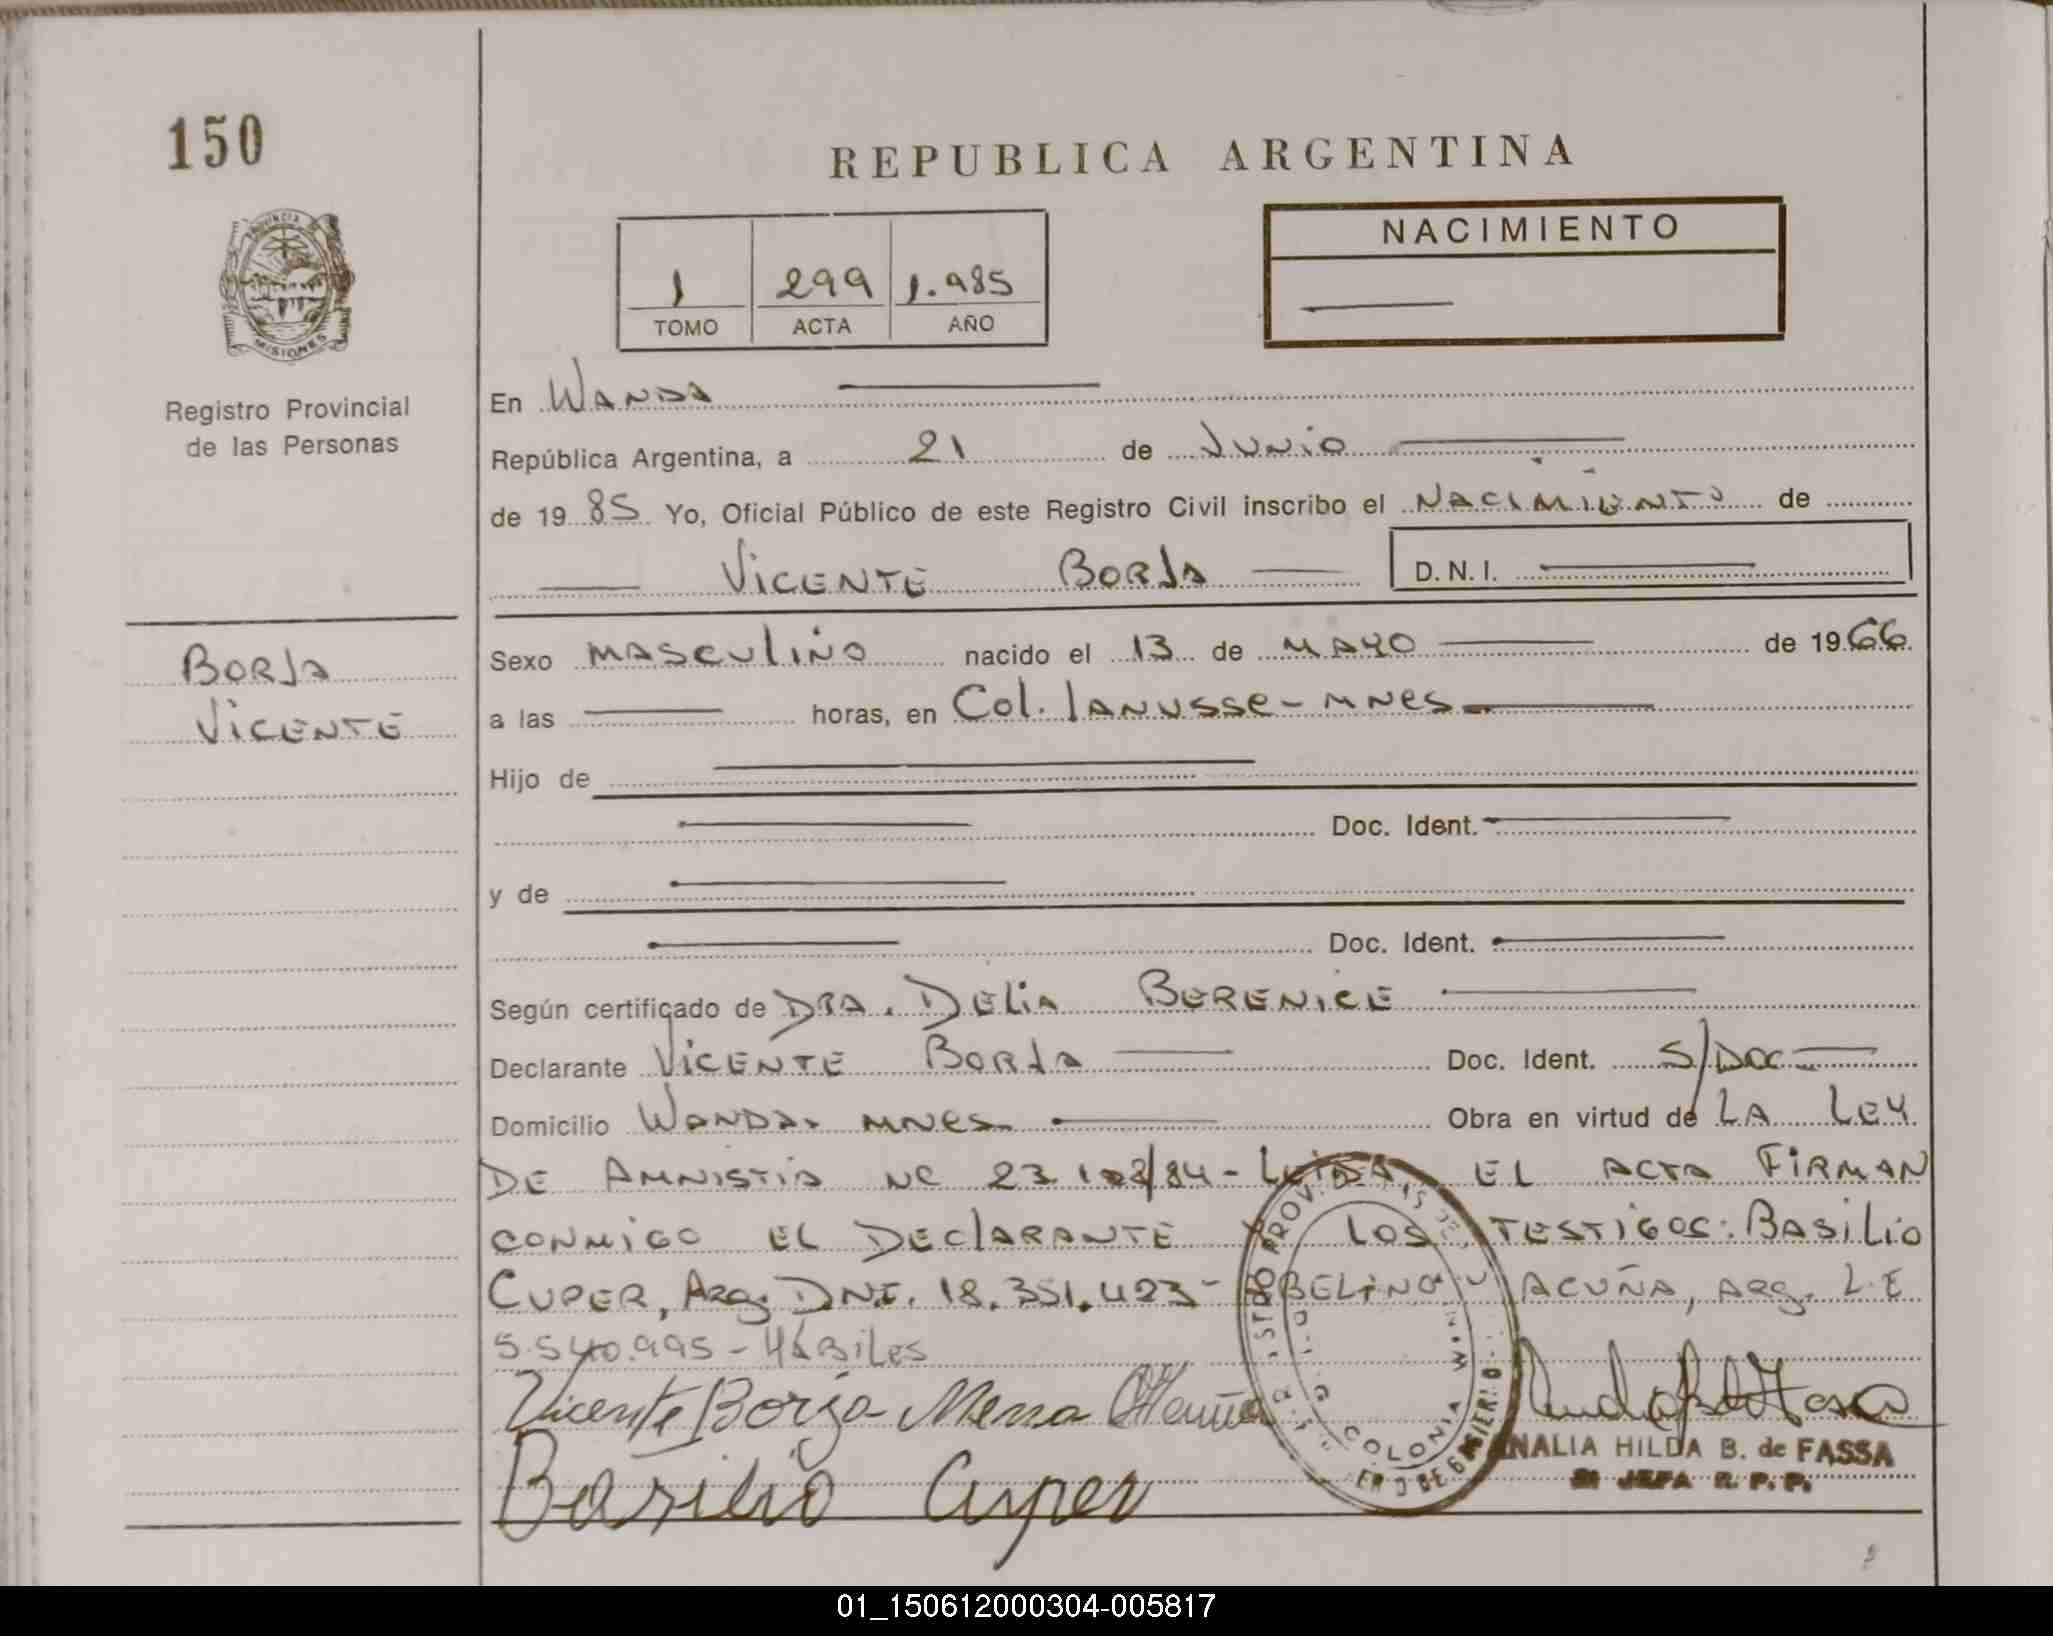 150
REPUBLICA ARGENTINA
PROVINCIA DE
MISIONES
Registro Provincial
de las Personas
1 299 1.985
TOMO ACTA AÑO
NACIMIENTO
En WANDA
República Argentina, a 21 de JUNIO
de 1985 Yo, Oficial Público de este Registro Civil inscribo el NACIMIENTO de
VICENTE BORJA D.N.I.
BORJA
VICENTE
Sexo MASCULINO nacido el 13 de MAYO de 1966
a las horas, en Col. LANUSSE - MNES
Hijo de
Doc. Ident.
y de
Doc. Ident.
Según certificado de DRA. DELIA BERENICE
Declarante VICENTE BORJA Doc. Ident. S/DOC
Domicilio WANDA, MNES Obra en virtud de LA LEY
DE AMNISTIA Nº 23.128/84 - LEIDA EL ACTA FIRMAN
CONMIGO EL DECLARANTE Y LOS TESTIGOS: BASILIO
CUPER, Arg. DNI. 18.351.423 - ABELINO ACUÑA, Arg. L.E
5.540.995 - HÁBILES
Vicente Borja
Basilio Cuper
COLONIA WANDA
ANALIA HILDA B. de FASSA
JEFA R. P. P.
01_150612000304-005817